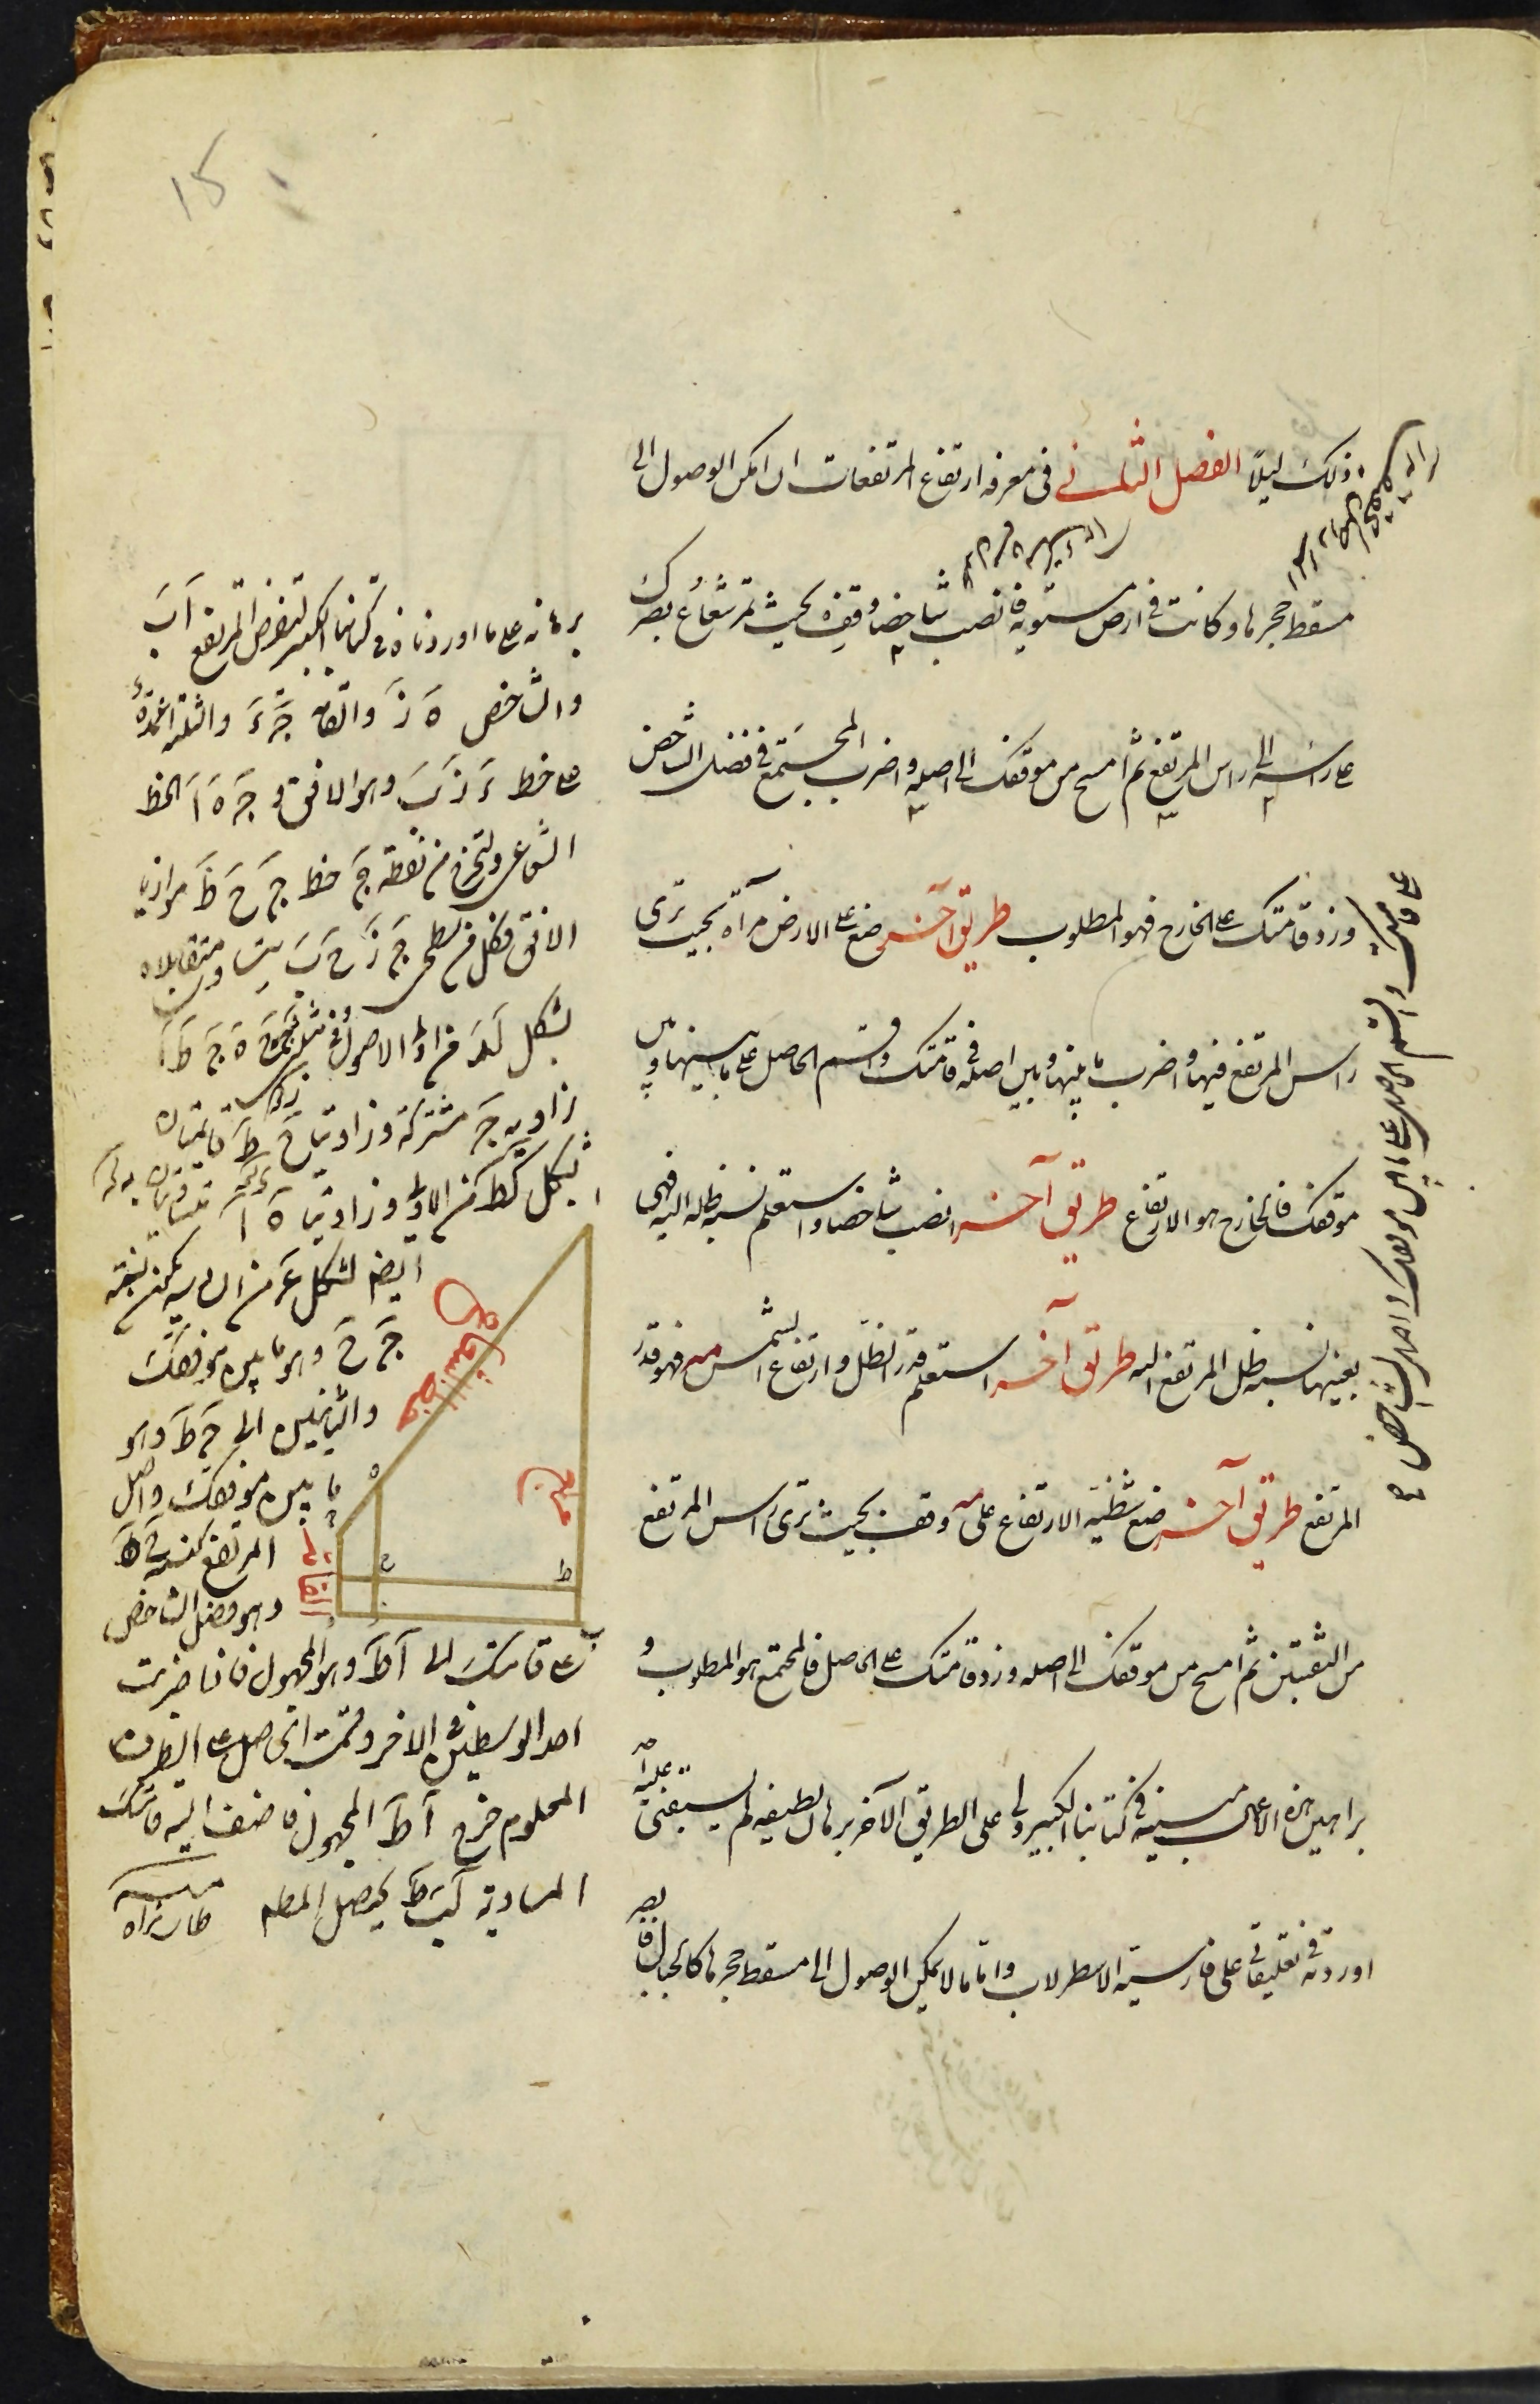 ذلك ليلا الفصل الثاني في معرفة ارتفاع المرتفعات ان امكن الوصول الى
مسقط حجرها وكانت في ارض مستوية فانصب شاخصا وقف بحيث تمر شعاع بصرك
على راسه الى راس المرتفع ثم امسح من موقفك الى اصله واضرب المجتمع في فضل الشاخص
على قامتك واقسم الحاصل على ما بين موقفك واصل الشاخص
وزد قامتك على الخارج فهو المطلوب طريق آخر ضع على الارض مرآة بحيث ترى
راس المرتفع فيها واضرب ما بينها وبين اصله في قامتك واقسم الحاصل على ما بينها وبين
موقفك فالخارج هو الارتفاع طريق آخر انصب شاخصا واستعلم نسبة ظله اليه فهي
بعينها نسبة ظل المرتفع اليه طريق آخر استعلم قدر الظل وارتفاع الشمس مه فهو قدر
المرتفع طريق آخر ضع شظية الارتفاع على مه وقف بحيث ترى راس المرتفع
من الثقبتين ثم امسح من موقفك الى اصله وزد قامتك على الحاصل فالمجتمع هو المطلوب و
براهين هذه الاعمال مبينة في كتابنا الكبير ولي على الطريق الآخر برهان لطيف لم يسبقني عليه احد
اوردته في تعليقاتي على فارسية الاسطرلاب واما ما لا يمكن الوصول الى مسقط حجرها كالجبال
برهانه على ما اوردناه في كتابنا الكبير لنفرض المرتفع اب
والشاخص ه ز والقامة ج د والثلثة اعمدة
على خط د ز ب وهو الافق و ج ه ا الخط
الشعاعي ولنخرج من نقطة ج خط ج ح ط موازيا
الافق فكل من سطحي
بشكل لد من اولى الاصول وفي مثلثي ج ح ه ج ط ا
زاوية ج مشتركة وزاويتا ح ط قائمتان
بشكل كط من الاولى وزاويتا ه ا متساويتان
ايضا بشكل د من السادسة يكون نسبة
ج ح وهو ما بين موقفك
والشاخص الى ج ط وهو
ما بين موقفك واصل
المرتفع كنسبة ه ح
وهو فضل الشاخص
على قامتك الى ا ط وهو المجهول فاذا ضربت
احد الوسطين في الاخر وقسمت الحاصل على الطرف
المعلوم خرج ا ط المجهول فاضف اليه قامتك
المساوية لـ ب ط يحصل المطلوب منه طاب ثراه
خط الشعاع
مرتفع
القامة
ا
ه
ج
ح
ط
ب
15